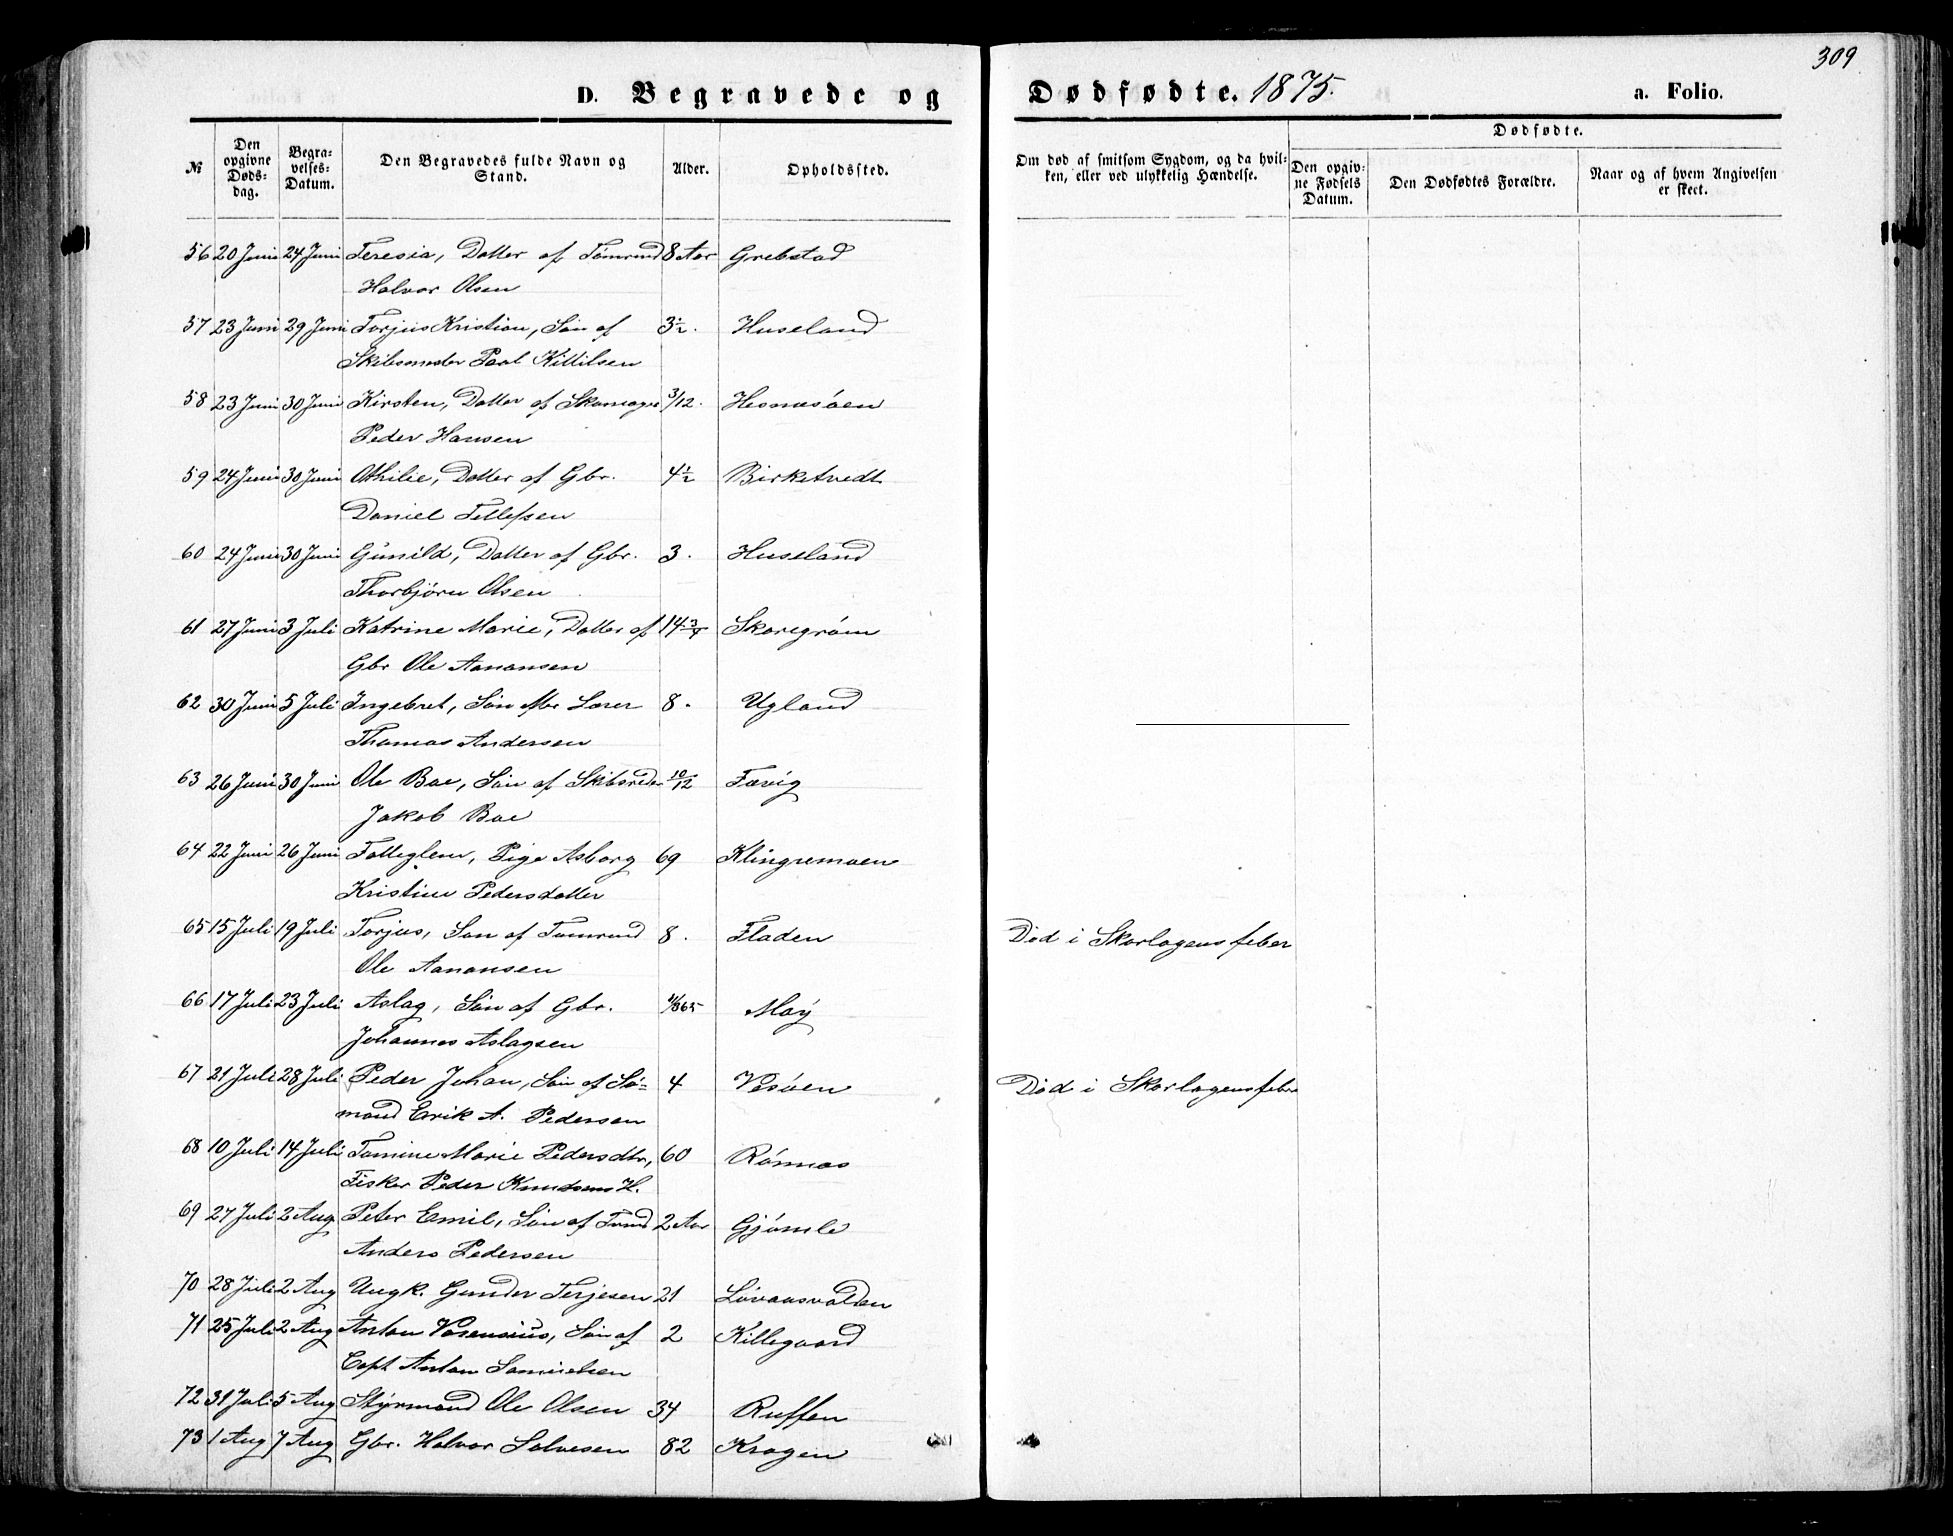 309
D. Begravede og Dødfødte. 1875.
a. Folio.
№
Den opgivne Døds-dag.
Begra-velses-Datum.
Den Begravedes fulde Navn og Stand.
Alder.
Opholdssted.
Om død af smitsom Sygdom, og da hvil-ken, eller ved ulykkelig Hændelse.
Dødfødte.
Den opgiv-ne Fødsels Datum.
Den Dødfødtes Forældre.
Naar og af hvem Angivelsen er skeet.
56 20 Juni 24 Juni Teresia, Datter af Tømmd 8 Aar Grebstad
Halvor Olsen
57 23 Juni 29 Juni Torjus Kristian, Søn af 3½. Huseland
Skibsmster Paal Kittilsen
58 23 Juni 30 Juni Kirsten, Datter af 3/12. Hesnæsøen
Peder Hansen
59 24 Juni 30 Juni Othilie, Datter af Gbr. 4½ Birketvedt
Daniel Tellefsen
60 24 Juni 30 Juni Gunild, Datter af Gbr. 3. Huseland
Thorbjørn Olsen
61 27 Juni 3 Juli Katrine Marie, Datter af 14¾ Skaregrøm
Gbr Ole Aanonsen
62 30 Juni 5 Juli Ingebret, Søn Lærer 8. Ugland
Thomas Andersen
63 26 Juni 30 Juni Ole Boe, Søn af Skibsreder 10/12 Fævig
Jakob Boe
64 22 Juni 26 Juni Fattiglem, Pige Asborg 69 Klingremoen
Kristine Pedersdatter
65 15 Juli 19 Juli Torjus, Søn af Tømmd 8. Fladen Død i Skarlagensfeber
Ole Aanonsen
66 17 Juli 23 Juli Aslag, Søn af Gbr. Moy
Johannes Aslagsen
67 21 Juli 28 Juli Peder Johan, Søn af Sø= 4 Vesøen Død i Skarlagensfeber
mand Erik A. Pedersen
68 10 Juli 14 Juli Tomine Marie Pedersdtr, 60 Rønnes
Fisker Peder Knudsens H.
69 27 Juli 2 Aug Peter Emil, Søn af Tømd 2 Aar Gjømle
Anders Pedersen
70 28 Juli 2 Aug Ungk. Gunder Terjesen 21 Løvaasvolden
71 25 Juli 2 Aug Anton Søn af 2 Killegaard
Capt Anton Samuelsen
72 31 Juli 5 Aug Styrmand Ole Olsen 34 Ruffen
73 1 Aug 7 Aug Gbr. Halvor Salvesen 82 Kragen